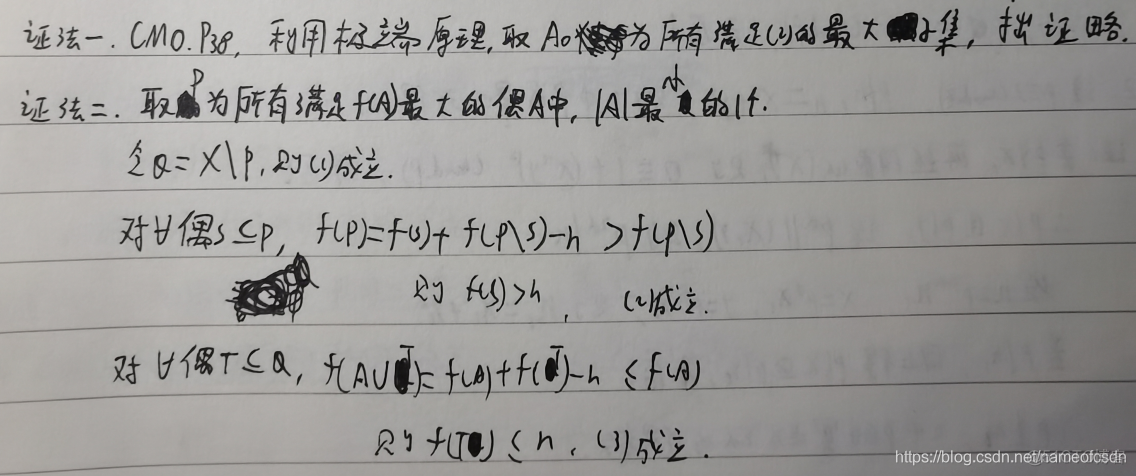 证法一. CMO.P38, 利用极端原理, 取A₀为所有满足(2)的最大子集, 证略.
证法二. 取P为所有满足f(A)最大的偶A中, |A|最小的1个.
令Q = X\P, 则(1)成立.
对∀偶S⊆P, f(P)=f(S)+f(P\S)-n >f(P\S)
则 f(S)>n, (2)成立.
对∀偶T⊆Q, f(A∪T)=f(A)+f(T)-n ≤f(A)
则f(T)≤n, (3)成立.
https://blog.csdn.net/nameofcsdn